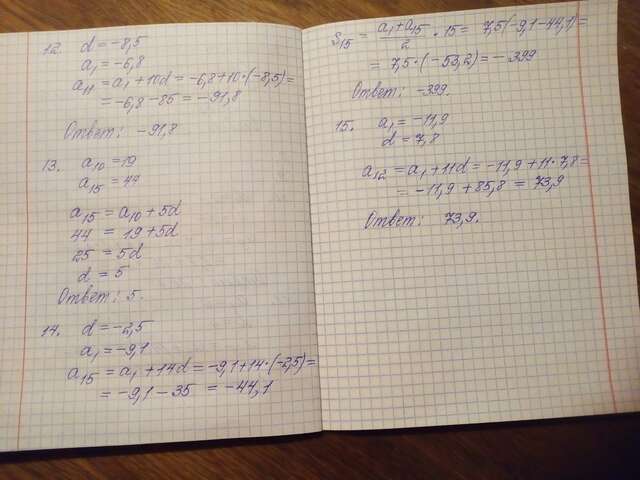 12. d = -8,5
a₁ = -6,8
a₁₁ = a₁ + 10d = -6,8+10·(-8,5)=
= -6,8 - 85 = -91,8
Ответ: -91,8
13. a₁₀ = 19
a₁₅ = 44
a₁₅ = a₁₀ + 5d
44 = 19 + 5d
25 = 5d
d = 5
Ответ: 5.
14. d = -2,5
a₁ = -9,1
a₁₅ = a₁ + 14d = -9,1+14·(-2,5)=
= -9,1 - 35 = -44,1
S₁₅ = (a₁ + a₁₅)/2 · 15 = 7,5(-9,1-44,1)=
= 7,5·(-53,2) = -399
Ответ: -399.
15. a₁ = -11,9
d = 7,8
a₁₂ = a₁ + 11d = -11,9 + 11·7,8=
= -11,9 + 85,8 = 73,9
Ответ: 73,9.